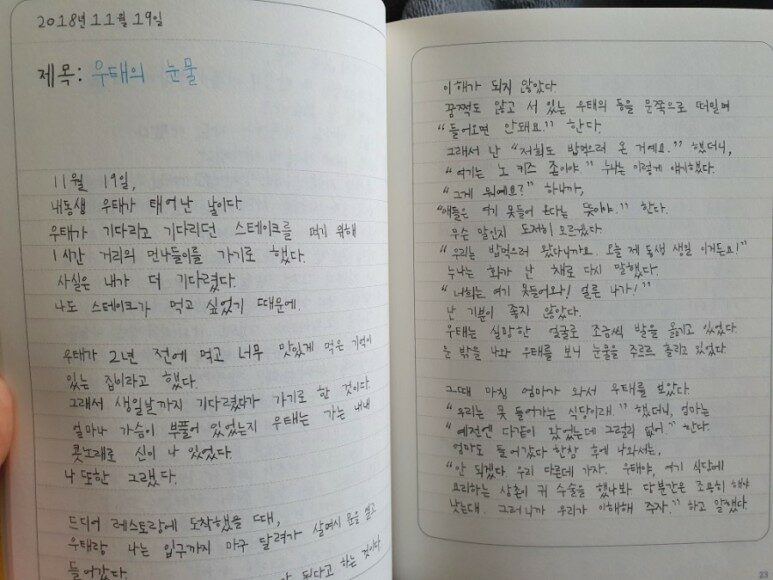 2018년 11월 19일
제목: 우태의 눈물
11월 19일,
내동생 우태가 태어난 날이다
우태가 기다리고 기다리던 스테이크를 먹기 위해
1시간 거리의 먼나들이를 가기로 했다.
사실은 내가 더 기다렸다.
나도 스테이크가 먹고 싶었기 때문에.
우태가 2년 전에 먹고 너무 맛있게 먹은 기억이
있는 집이라고 했다.
그래서 생일날까지 기다렸다가 가기로 한 것이다
얼마나 가슴이 부풀어 있었는지 우태는 가는 내내
콧노래로 신이 나 있었다.
나 또한 그랬다.
드디어 레스토랑에 도착했을 때,
우태랑 나는 입구까지 마구 달려가 살며시 문을 열고
들어갔다.
안 된다고 하는 것이다.
이해가 되지 않았다
꿈쩍도 않고 서 있는 우태의 등을 문쪽으로 떠밀며
"들어오면 안돼요." 한다.
그래서 난 "저희도 밥먹으러 온 거예요." 했더니,
"여기는 노 키즈 존이야" 누나는 이렇게 얘기했다.
"그게 뭐예요?" 하니까,
"애들은 여기 못들어 온다는 뜻이야." 한다.
무슨 말인지 도저히 모르겠다.
"우리는 밥먹으러 왔다니까요. 오늘 제 동생 생일 이거든요!"
누나는 화가 난 채로 다시 말했다.
"너희는 여기 못들어와! 얼른 나가!"
난 기분이 좋지 않았다.
우태는 실망한 얼굴로 조금씩 발을 옮기고 있었다
문 밖을 나와 우태를 보니 눈물을 주르르 흘리고 있었다
그때 마침 엄마가 와서 우태를 보았다.
"우리는 못 들어가는 식당이래." 했더니, 엄마는
"예전엔 다같이 갔었는데 그럴리 없어" 한다.
엄마도 들어갔다 한참 후에 나와서는,
"안 되겠다 우리 다른데 가자. 우태야, 여기 식당에
요리하는 삼촌이 귀 수술을 했나봐 당분간은 조용히 해야
낫는대. 그러니까 우리가 이해해 주자." 하고 말했다
23